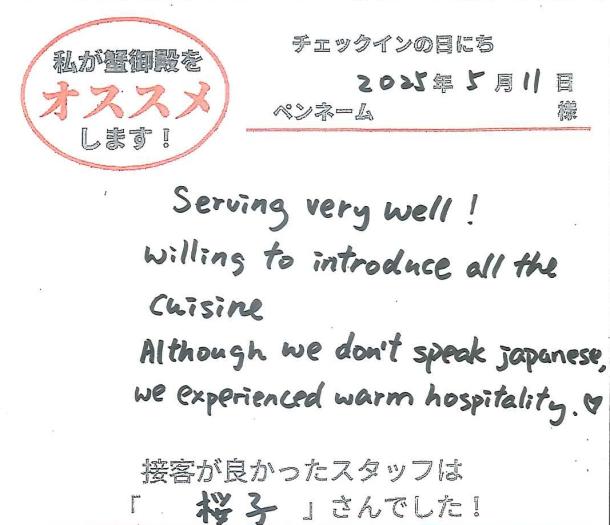 私が蟹御殿を
オススメ
します！
チェックインの日にち
2025年5月11日
ペンネーム 様
Serving very well!
willing to introduce all the
cuisine
Although we don't speak japanese,
we experienced warm hospitality.♡
接客が良かったスタッフは
「 桜子 」さんでした！